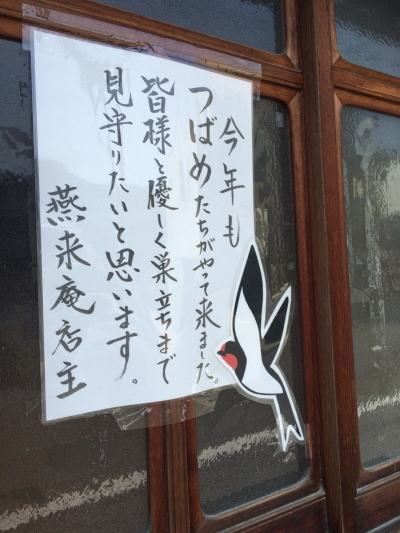 今年も
つばめたちがやって来ました。
皆様と優しく巣立ちまで
見守りたいと思います。
燕来庵店主